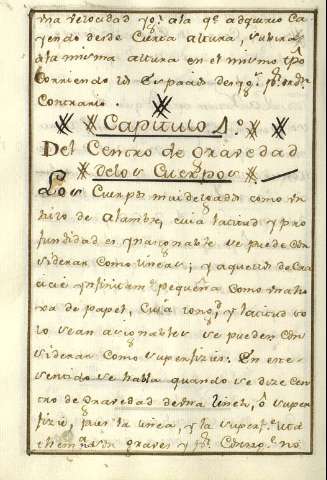 ma velocidad yg.l ala q.e adquirio Ca
yendo desde Cierta altura, subira
ala misma altura en el mismo tpo
Corriendo los Espacios de yg.l p.r ord.n
Contrario.
Capitulo 1.º
Del Centro de Gravedad
delos Cuerpos
Los Cuerpos mui delgados como un
hilo de alambre, cuia latitud y pro
fundidad es ynasignable se puede con
siderar como lineas; y aquellos de Gra
cicie ynfinitam.te pequeña como una ho
xa de papel, Cuia long.d y latitud so
lo sean asignables se pueden Con
siderar Como superficies. En este
sentido se habla quando se dize Cen
tro de Gravedad de una linea, ô super
ficie, pues la linea, y la superf.e
no